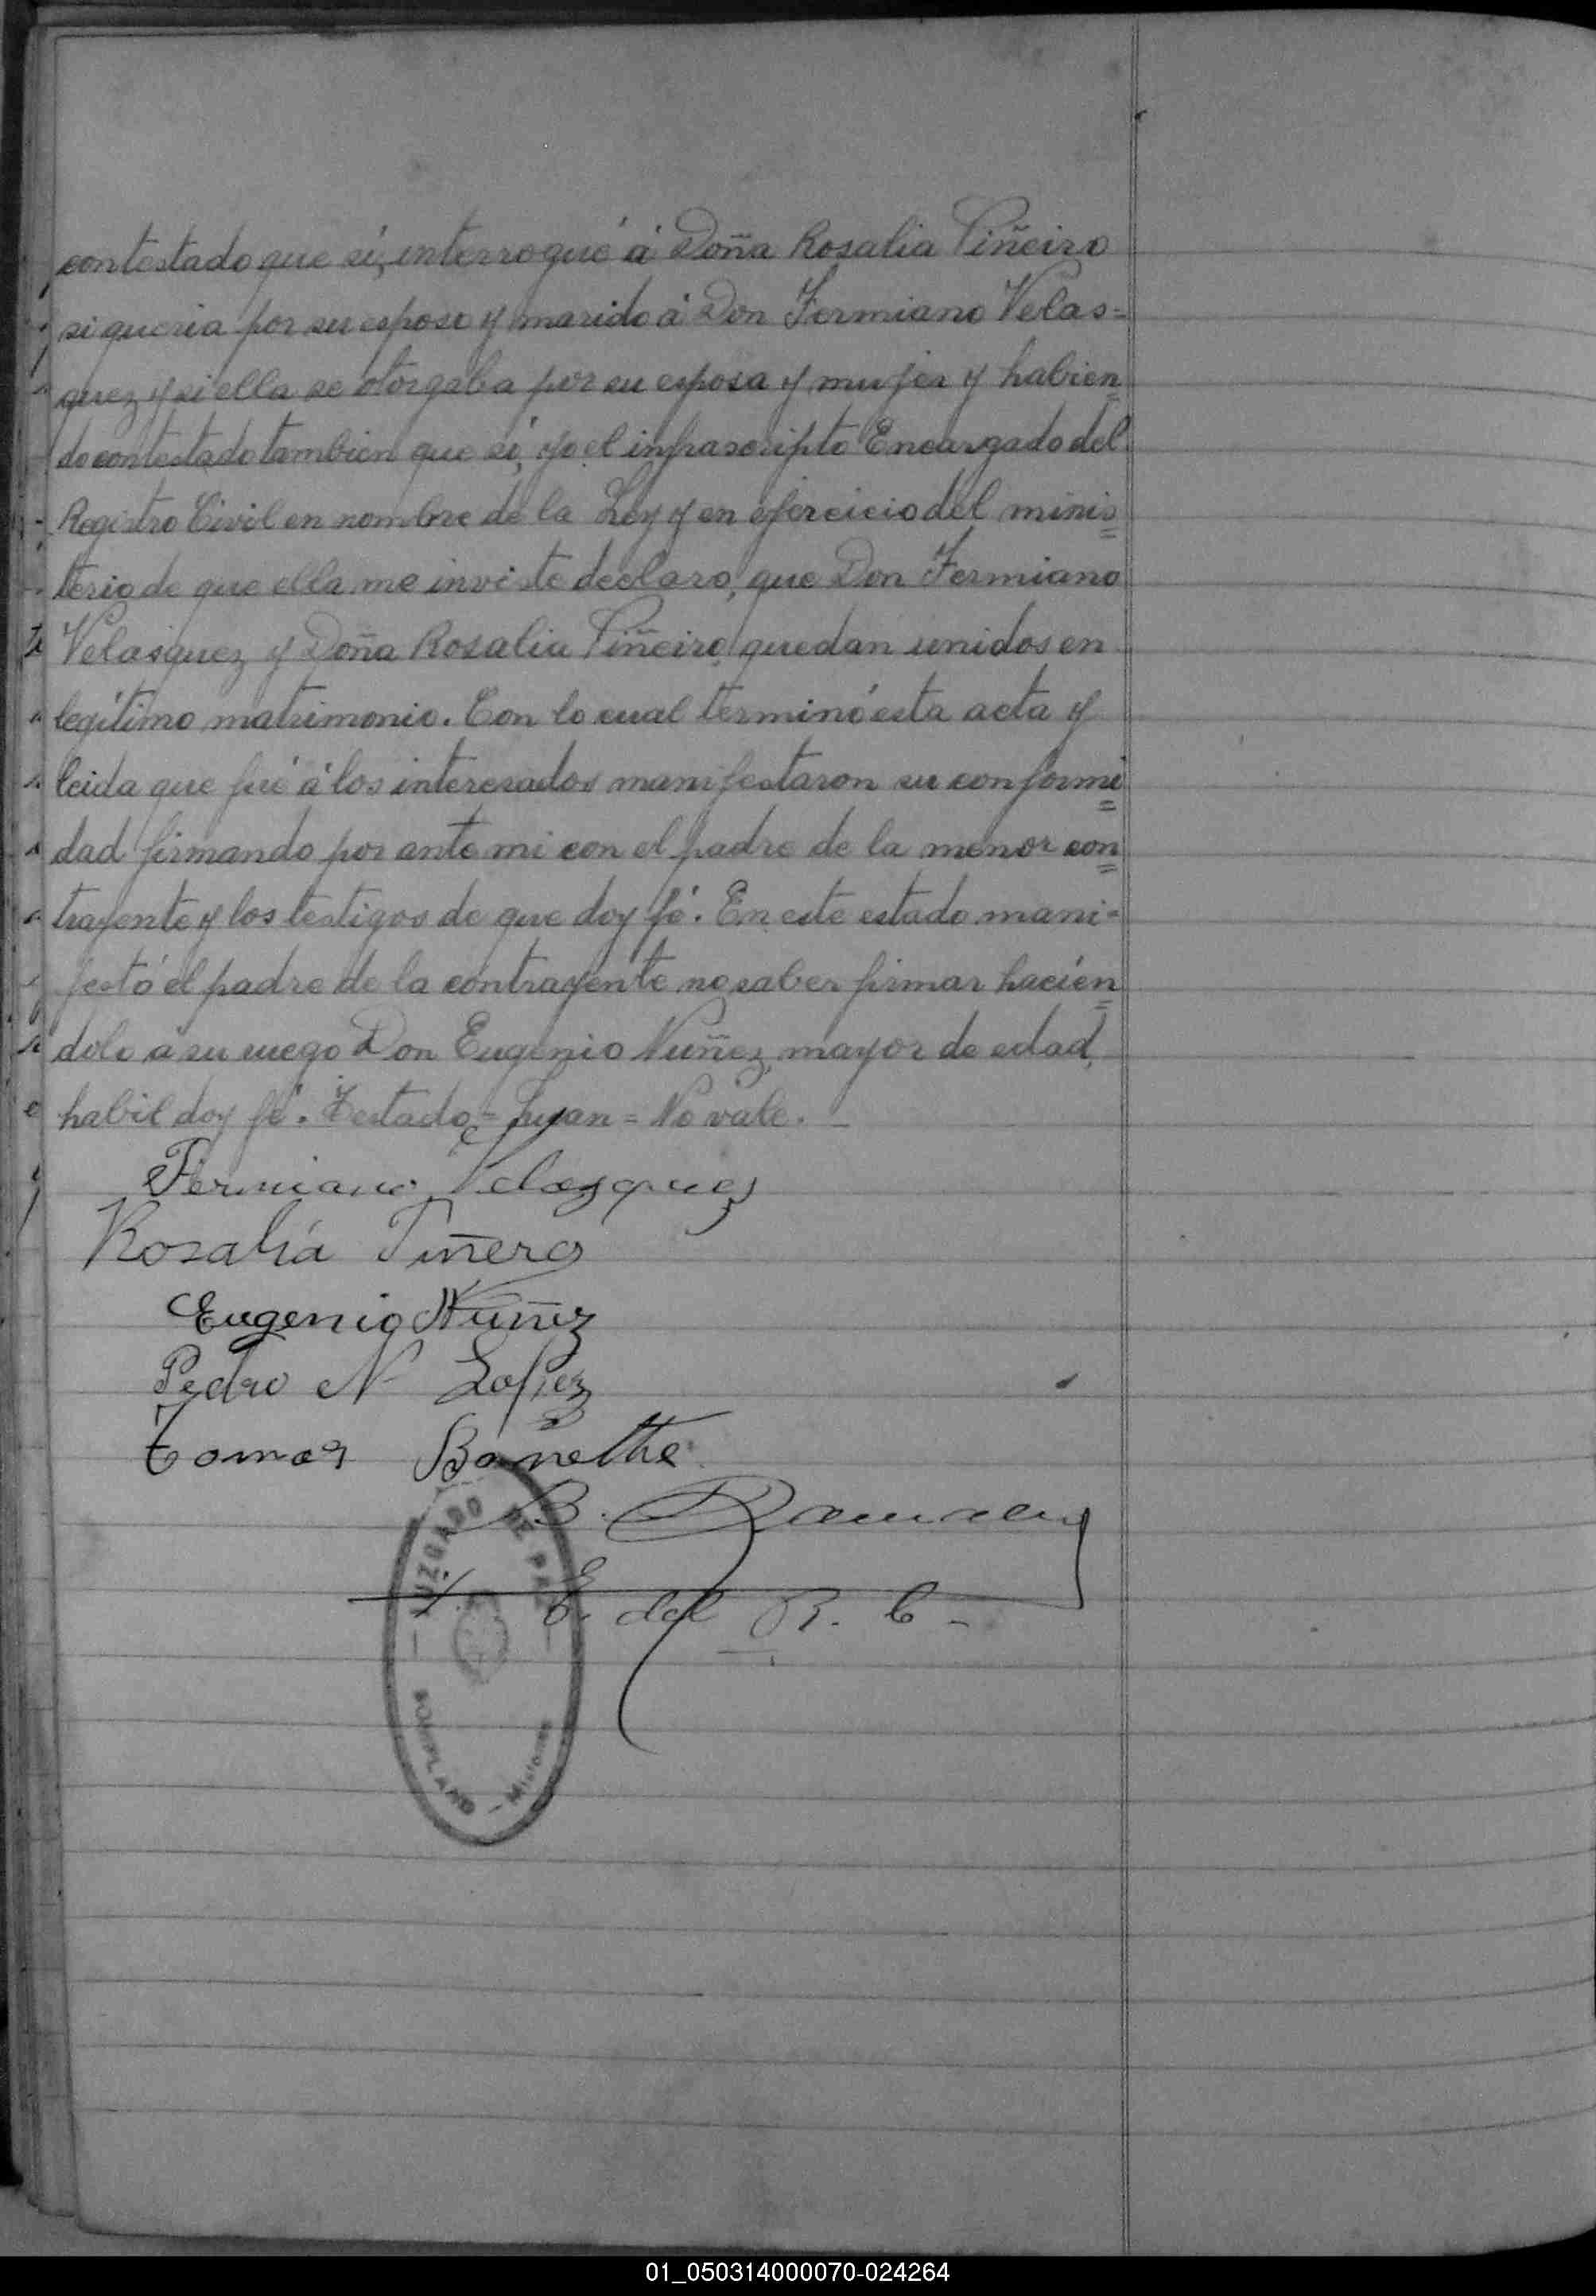 contestado que sí, interrogué á Doña Rosalia Piñeiro
si queria por su esposo y marido á Don Fermiano Velas=
quez y si ella se otorgaba por su esposa y mujer y habien=
do contestado tambien que sí, yo el infrascripto Encargado del
Registro Civil en nombre de la Ley y en ejercicio del minis=
terio de que ella me inviste declaro, que Don Fermiano
Velasquez y Doña Rosalia Piñeiro, quedan unidos en
legítimo matrimonio. Con lo cual terminó esta acta y
leida que fué á los interesados manifestaron su conformi=
dad firmando por ante mi con el padre de la menor con=
trayente y los testigos de que doy fé. En este estado mani=
festó el padre de la contrayente no saber firmar hacien=
dolo á su ruego Don Eugenio Nuñez, mayor de edad,
habil doy fé. Testado = = No vale. _
Fermiano Velasquez
Rosalía Piñero
Eugenio Nuñez
Pedro N Lopez
Tomas
B.
E. del R. C -
JUZGADO DE PAZ
BONPLAND - Misiones
01_050314000070-024264